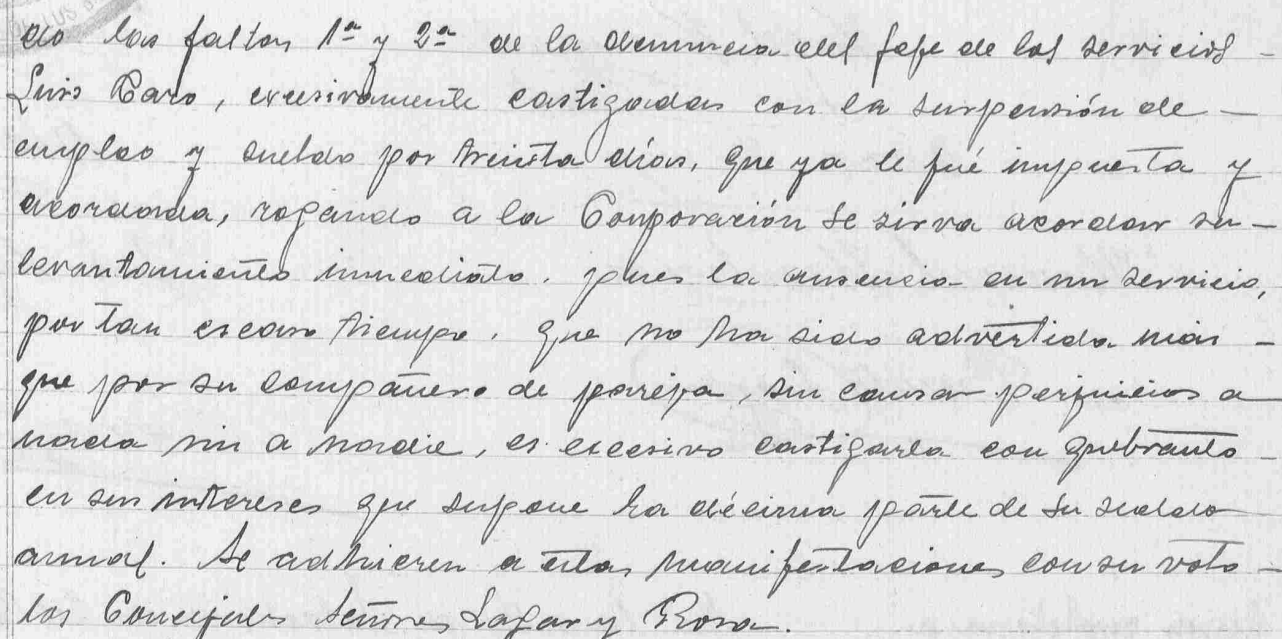 do las faltas 1ª y 2ª de la denuncia del Jefe de los servicios -
Luis Caro, excesivamente castigadas con la suspensión de -
empleo y sueldo por treinta días, que ya le fué impuesta y
acordada, rogando a la Corporación se sirva acordar su -
levantamiento inmediato, pues la ausencia en un servicio,
por tan escaso tiempo, que no ha sido advertida más -
que por su compañero de pareja, sin causar perjuicios a
nada ni a nadie, es excesivo castigarla con quebranto -
en sus intereses que supone la décima parte de su sueldo
anual. Se adhieren a estas manifestaciones con su voto -
los Concejales Señores Lagar y Rosa.